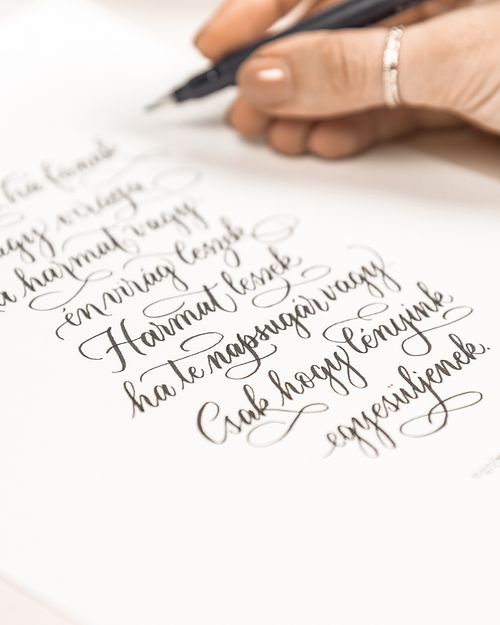 ha fának
vagy virága
ha harmat vagy
én virág leszek
Harmat leszek
ha te napsugár vagy
Csak hogy lényink
egyesüljenek.